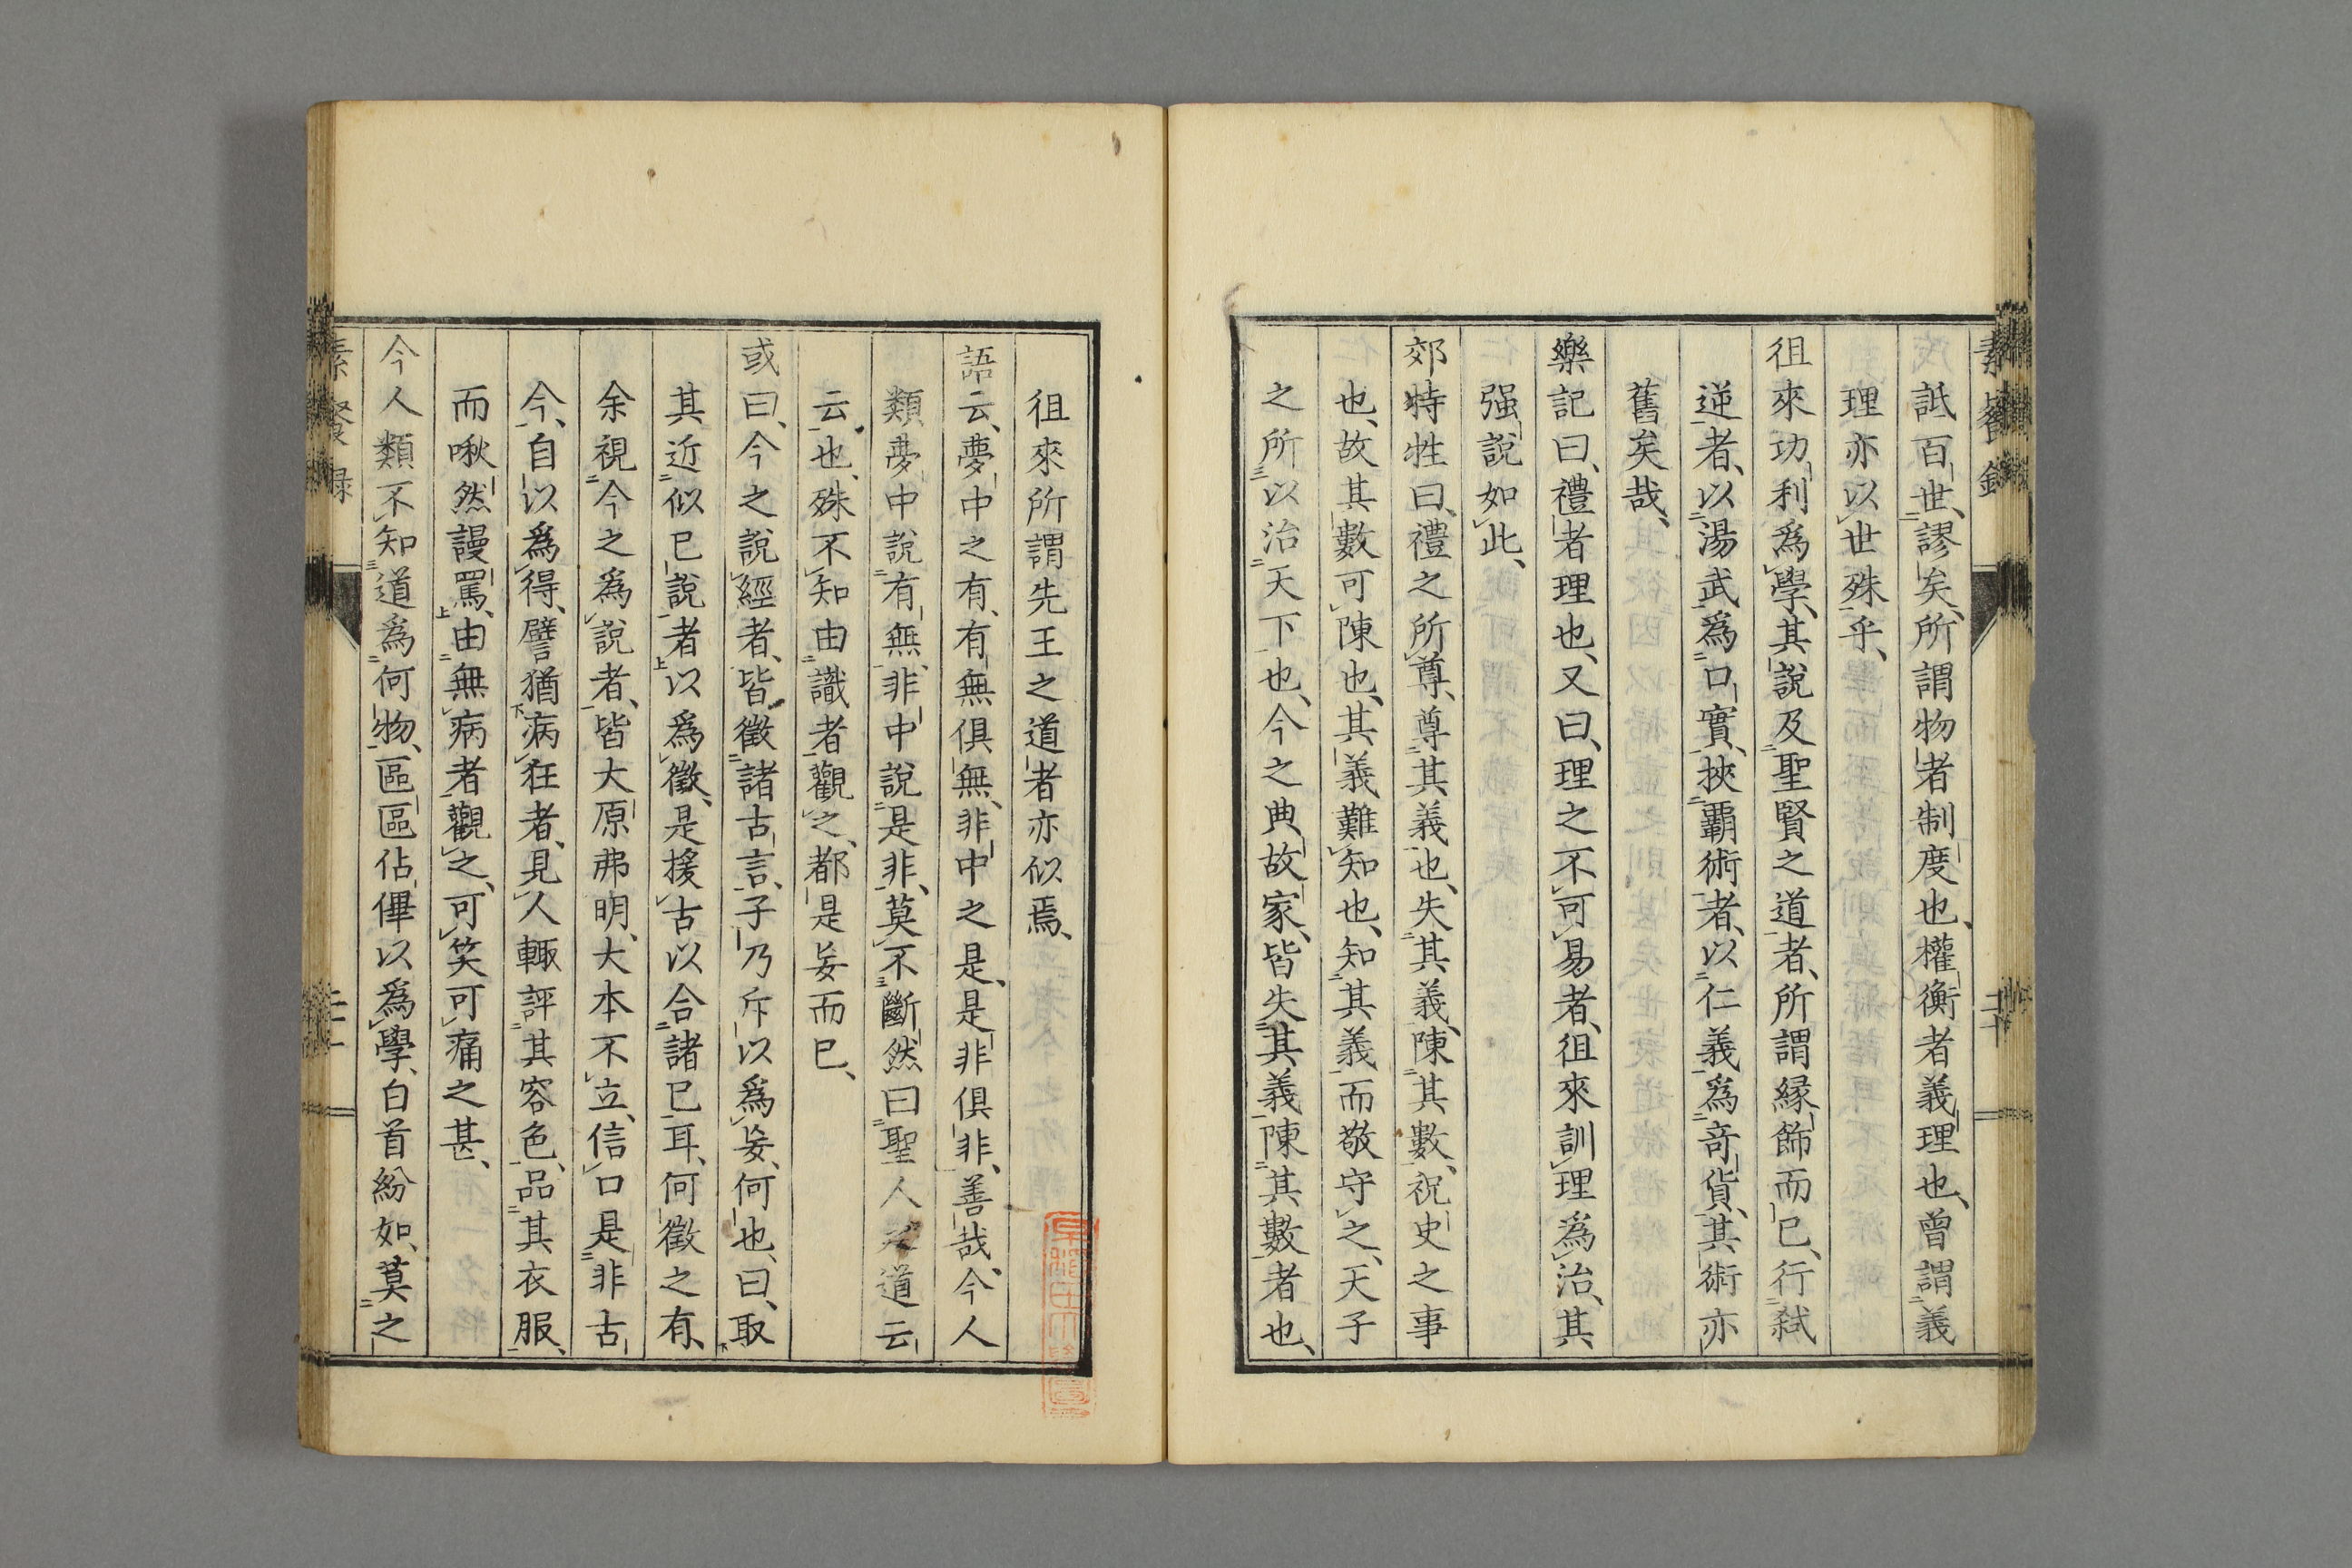 素餐錄
詆百世、謬矣、所謂物者制度也、權衡者義理也、曾謂義
理亦以世殊乎、
徂來功利爲學、其說及聖賢之道者、所謂緣飾而已、行弒
逆者、以湯武爲口實、挾霸術者、以仁義爲奇貨、其術亦
舊矣哉、
樂記曰、禮者理也、又曰、理之不可易者、徂來訓理爲治、其
强說如此、
郊特牲曰、禮之所尊、尊其義也、失其義、陳其數、祝史之事
也、故其數可陳也、其義難知也、知其義而敬守之、天子
之所以治天下也、今之典故家、皆失其義陳其數者也、
徂來所謂先王之道者亦似焉、
語云、夢中之有、有無俱無、非中之是、是非俱非、善哉、今人
類夢中說有無、非中說是非、莫不斷然曰聖人之道云
云也、殊不知由識者觀之、都是妄而已、
或曰、今之說經者、皆徵諸古言、子乃斥以爲妄、何也、曰、取
其近似已說者以爲徵、是援古以合諸已耳、何徵之有、
余視今之爲說者、皆大原弗明、大本不立、信口是非古
今、自以爲得、譬猶病狂者、見人輙評其容色、品其衣服、
而啾然謾罵、由無病者觀之、可笑可痛之甚、
今人類不知道爲何物、區區佔俾以爲學、白首紛如、莫之
素餐録